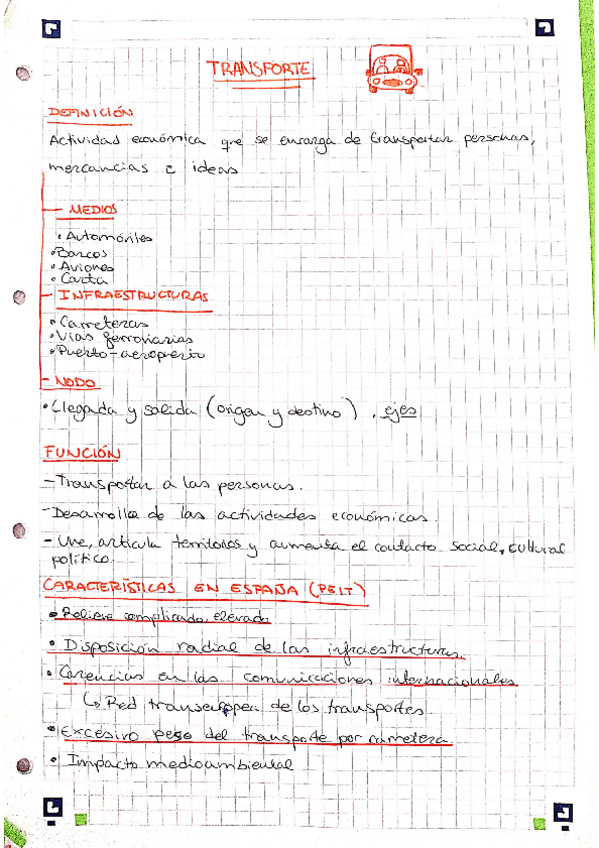 TRANSPORTE
DEFINICIÓN
Actividad económica que se encarga de transportar personas,
mercancias e ideas
- MEDIOS
• Automóviles
• Barcos
• Aviones
• Carta
- INFRAESTRUCTURAS
• Carreteras
• Vías ferroviarias
• Puerto-aeropuerto
- NODO
• Llegada y salida (origen y destino), ejes
FUNCIÓN
- Transportar a las personas.
- Desarrollo de las actividades económicas.
- Une, articula territorios y aumenta el contacto social, cultural
político.
CARACTERÍSTICAS EN ESPAÑA (PEIT)
• Relieve complicado, elevado
• Disposición radial de las infraestructuras.
• Carencias en las comunicaciones internacionales
↳ Red transeuropea de los transportes.
• Excesivo peso del transporte por carretera
• Impacto medioambiental